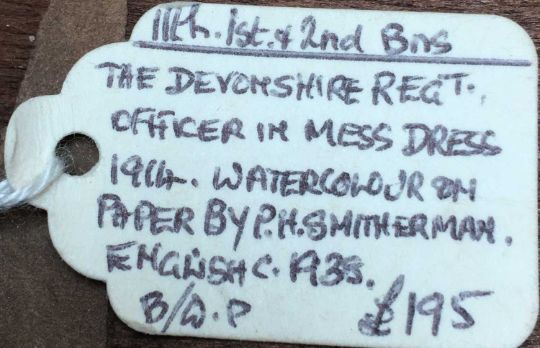 11th. 1st. & 2nd Bns
THE DEVONSHIRE REGT.,
OFFICER IN MESS DRESS
1914. WATERCOLOUR ON
PAPER BY P.H. SMITHERMAN.
ENGLISH C. 1938.
B/O.P £195